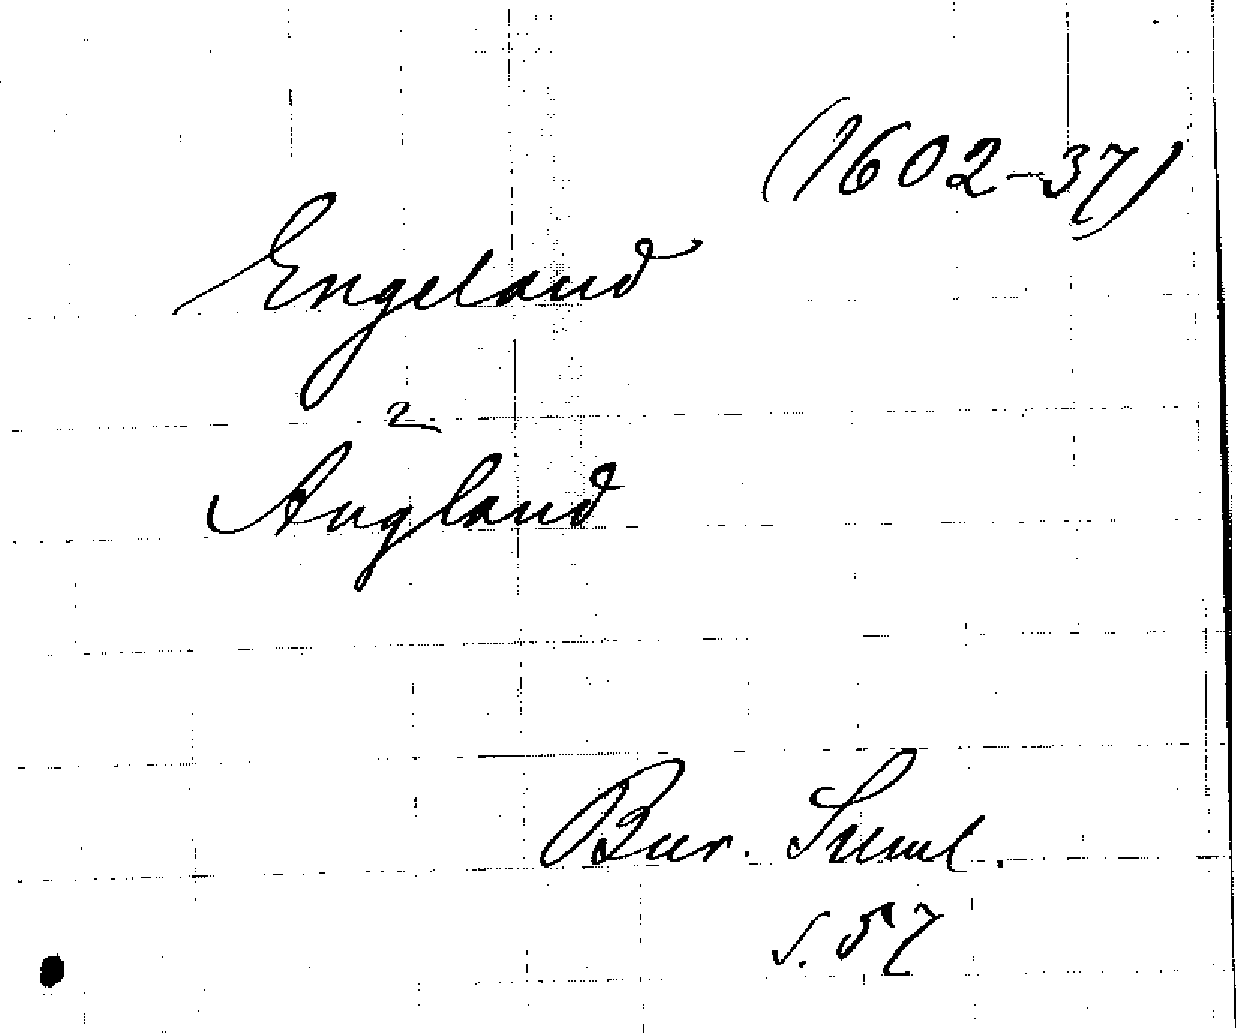 (1602-37)
Engeland
2
Angland
Bur. Saml.
s. 57